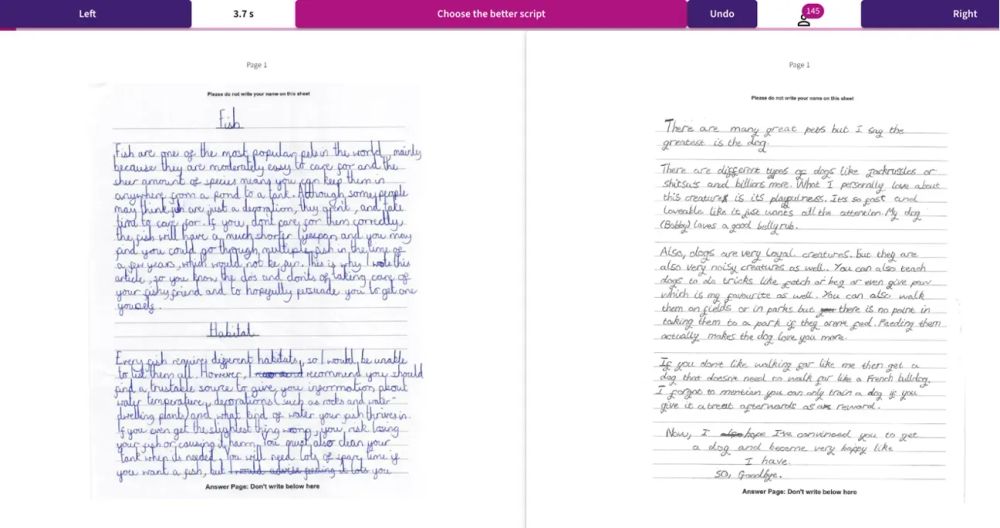 Left
3.7 s
Choose the better script
Undo
145
Right
Page 1
Please do not write your name on this sheet
Fish
Fish are one of the most popular pets in the world, mainly
because they are moderately easy to care for and the
sheer amount of species means you can keep them in
anywhere from a pond to a tank. Although some people
may think fish are just a decoration, they aren't, and take
time to care for. If you dont care for them correctly,
the fish will have a much shorter lifespan and you may
find you could go through multiple fish in the time of
a few years, which would not be fun. This is why I wrote this
article, so you know the dos and donts of taking care of
your fishy friend and to hopefully persuade you to get one
yourself.
Habitat
Every fish requires different habitats, so I would be unable
to list them all. However, I recommend you should
find a trustable source to give you information about
water temperature, decorations (such as rocks and water-
dwelling plants) and what kind of water your fish thrives in.
If you even get the slightest thing wrong, you risk losing
your fish or causing it harm. You must also clean your
tank when its needed. You will need lots of spare time if
you want a fish, but I would advise getting it lots you
Answer Page: Don't write below here
Page 1
Please do not write your name on this sheet
There are many great pets but I say the
greatest is the dog.
There are different types of dogs like jackrussles or
shitsus and billions more. What I personally love about
this creatures is its playfulness. Its so fast and
loveable like it just wants all the attention. My dog
(Bobby) loves a good belly rub.
Also, dogs are very loyal creatures, but they are
also very noisy creatures as well. You can also teach
dogs to do tricks like fetch or beg or even give paw
which is my favourite as well. You can also walk
them on fields or in parks but there is no point in
taking them to a park if they arent fed. Feeding them
actually makes the dog love you more.
If you dont like walking far like me then get a
dog that doesnt need to walk far like a French bulldog.
I forgot to mention you can only train a dog if you
give it a treat afterwards as a reward.
Now, I hope I've convinced you to get
a dog and become very happy like
I have.
SO, Goodbye.
Answer Page: Don't write below here